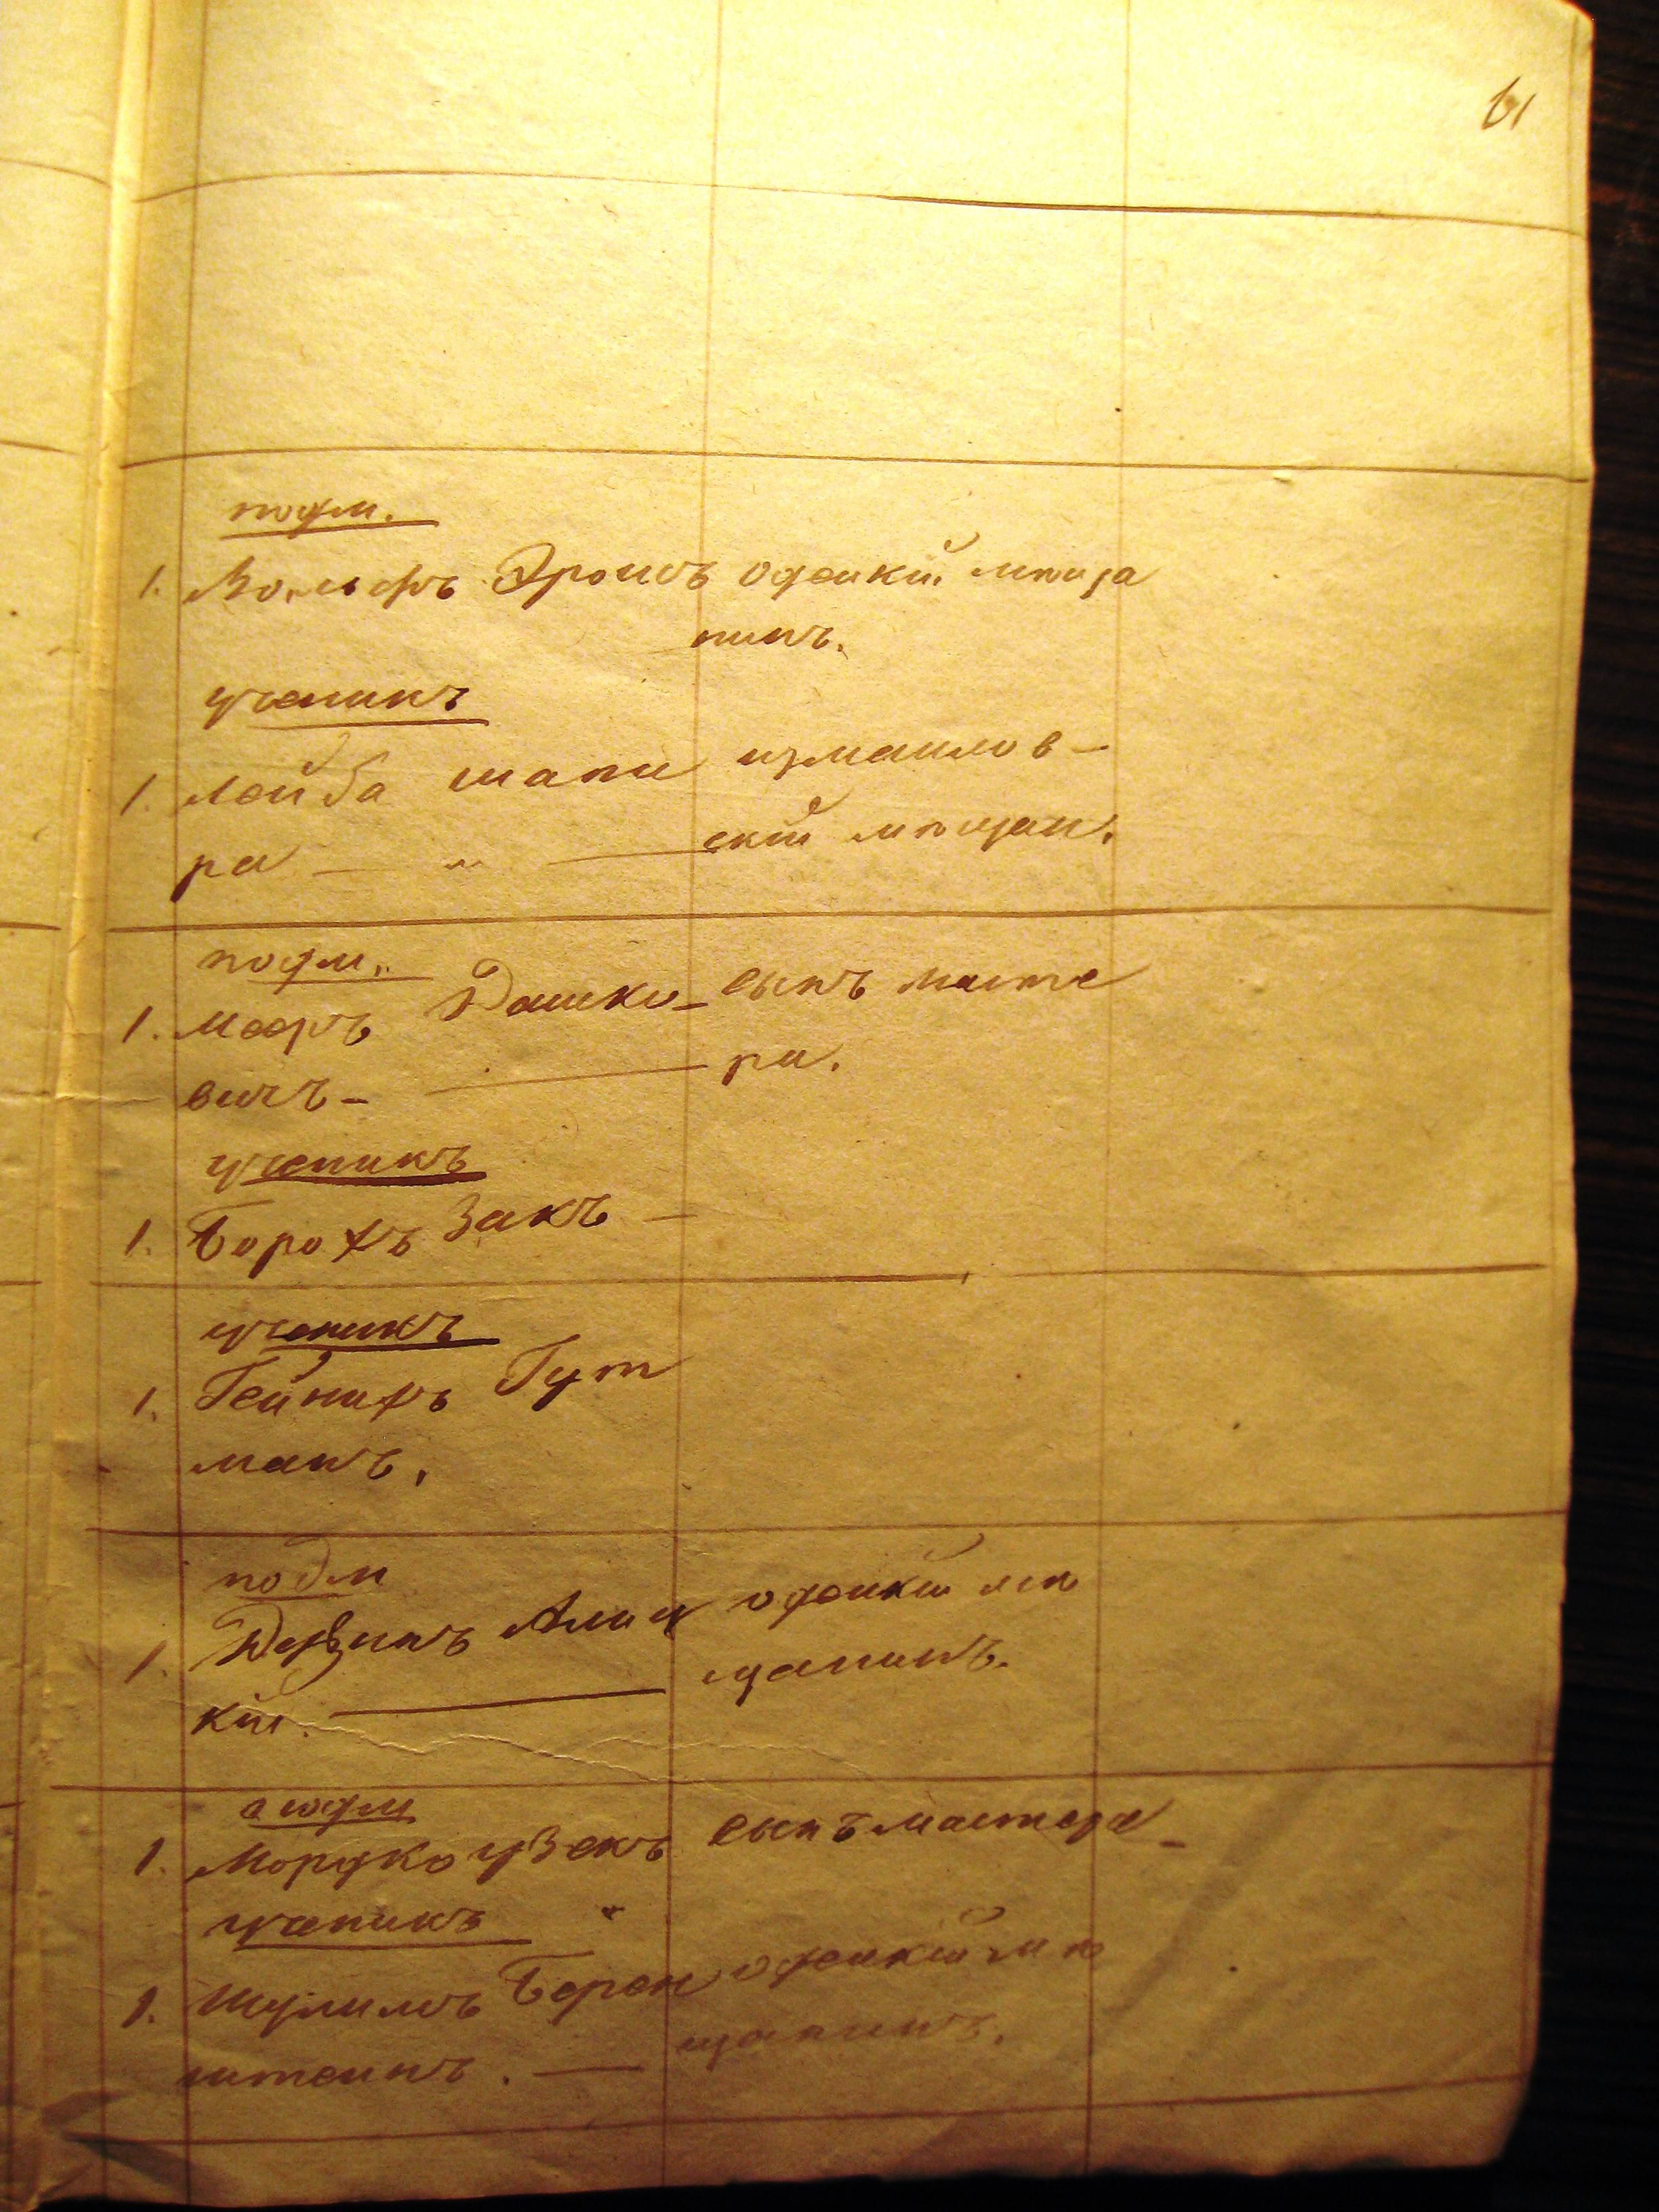 61
подм.
1. Вольфъ Эроисъ одескій мѣща
нинъ.
ученикъ
1. Лейба Шапи измаилов-
ра — " — скій мѣщан.
подм.
1. Мееръ Дашке- сынъ масте
вичъ - — ра.
ученикъ
1. Борохъ Закъ —
ученикъ
1. Гейнихъ Гут
манъ.
подм
1. Алиц одескій мѣ
кій. — щанинъ.
подм
1. Мордко Узекъ сынъ мастера -
ученикъ "
1. Шулимъ Берен одескій мѣ
штеинъ. — щанинъ.